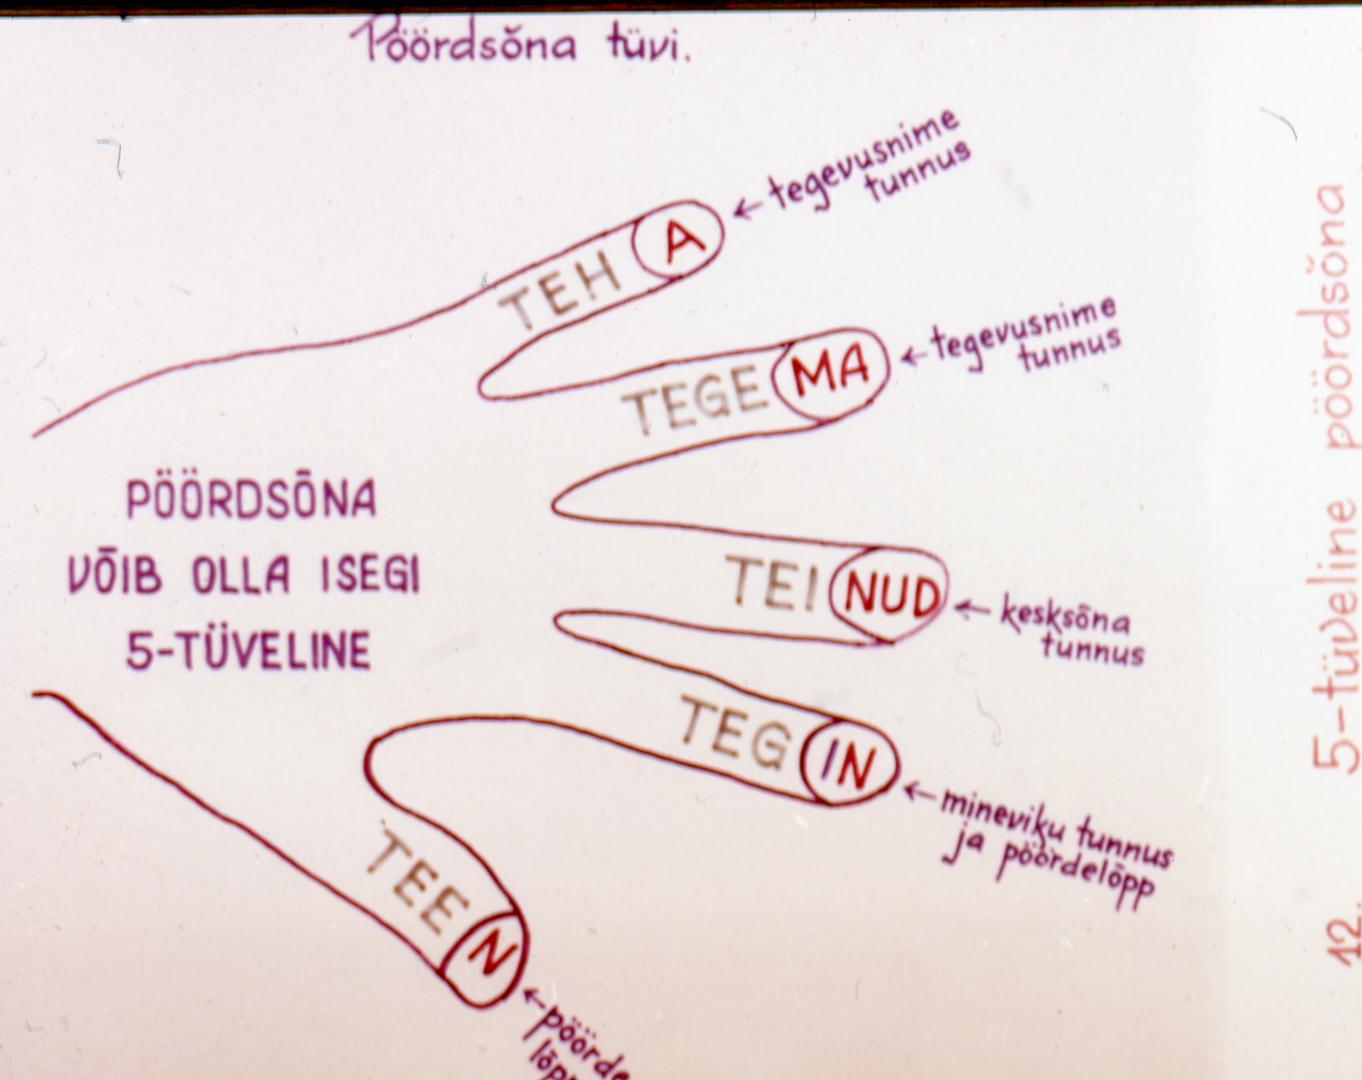 Pöördsõna tüvi.
TEHA
← tegevusnime
tunnus
TEGEMA
← tegevusnime
tunnus
PÖÖRDSÕNA
VÕIB OLLA ISEGI
5-TÜVELINE
TEINUD
← kesksõna
tunnus
TEGIN
← mineviku tunnus
ja pöördelõpp
TEEN
← pöörde
lõpp
12. 5-tüveline pöördsõna